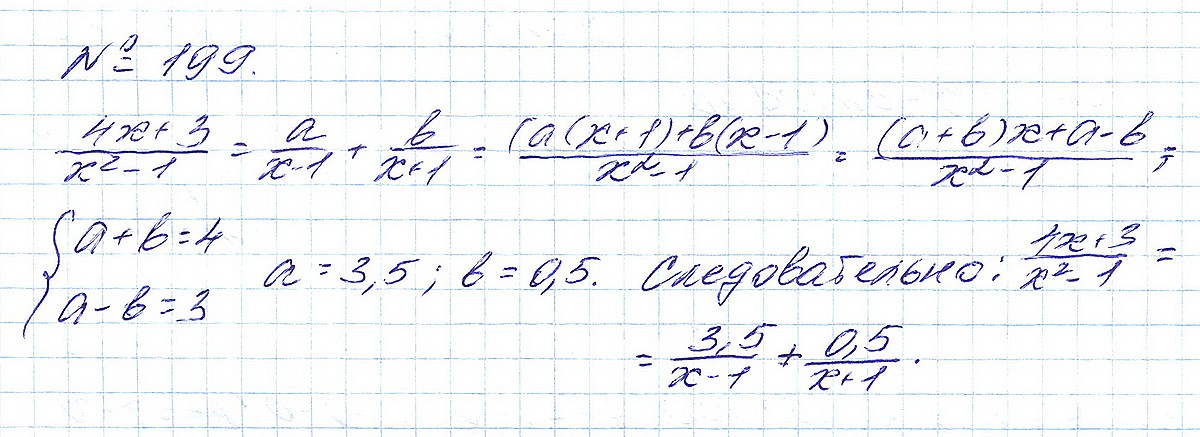 № 199.
(4x+3)/(x²-1) = a/(x-1) + b/(x+1) = (a(x+1)+b(x-1)/(x²-1) = ((a+b)x+a-b)/(x²-1);
{a+b=4
a-b=3
a=3,5; b=0,5. Следовательно: (4x+3)/(x²-1) =
= 3,5/(x-1) + 0,5/(x+1).